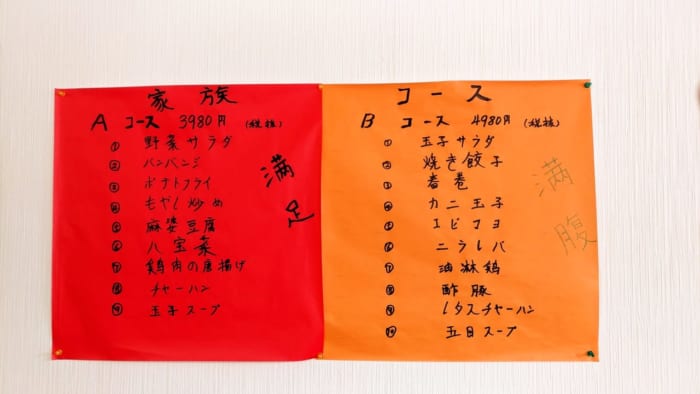 家族
A コース 3980円 (税抜)
① 野菜サラダ
② バンバンジ
③ ポテトフライ
④ もやし炒め
⑤ 麻婆豆腐
⑥ 八宝菜
⑦ 鶏肉の唐揚げ
⑧ チャーハン
⑨ 玉子スープ
満足
コース
B コース 4980円 (税抜)
① 玉子サラダ
② 焼き餃子
③ 春巻
④ カニ玉子
⑤ エビコヨ
⑥ ニラレバ
⑦ 油淋鶏
⑧ 酢豚
⑨ レタスチャーハン
⑩ 五目スープ
満腹